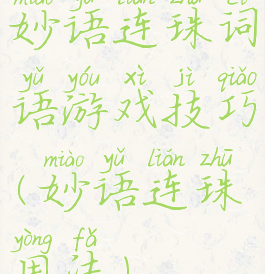 miào yǔ lián zhū cí
妙语连珠词
yǔ yóu xì jì qiǎo
语游戏技巧
miào yǔ lián zhū
(妙语连珠
yòng fǎ
用法)